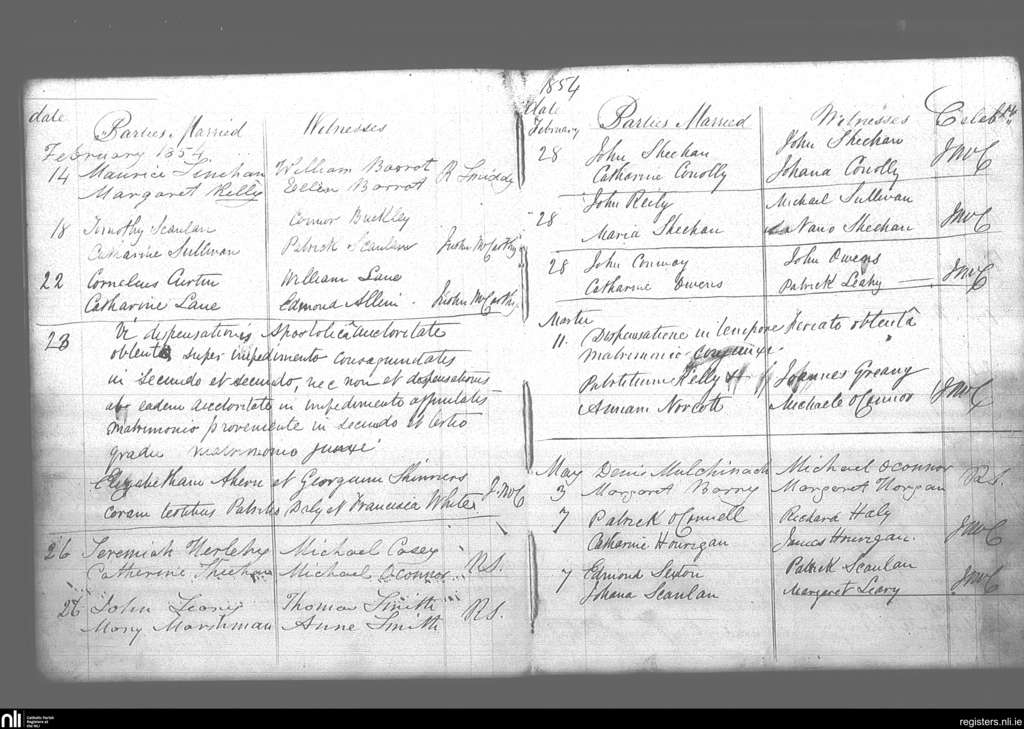 date
Parties Married Witnesses
February 1854.
14 Maurice Linehan William Barrot R Smiddy
Margaret Kelly Ellen Barrot
18 Timothy Scanlan Connor Buckley
Catharine Sullivan Patrick Scanlan Justin McCarthy
22 Cornelius Curtin William Lane
Catharine Lane Edmond Allen. Justin McCarthy
23 Vi dispensationis Apostolicâ auctoritate
obtentâ super impedimento consaguindatis
in secundo et secundo, nec non et dispensationis
ab eadem auctoritate in impedimento affinitatis
matrimonio proveniente in secundo et tertio
gradu matrimonio junxi
Elizabetham Ahern et Georgium Skinners
coram testibus Patritio Daly et Francisca White J. McC
26 Jeremiah Herlehy Michael Casey
Catherine Sheehan Michael O'Connor RS.
26 John Leary Thomas Smith
Mary Marshman Anne Smith RS.
1854
date
February Parties Married Witnesses Celebrt
28 John Sheehan John Sheehan
Catharine Conolly Johana Conolly JMcC
28 John Reily Michael Sullivan
Maria Sheehan Nano Sheehan JMcC
28 John Conway John Owens
Catharine Owens Patrick Leahy JMcC
Martii
11. Dispensatione in tempore vocato obtentâ
matrimonio conjunxi
Patritium Kelly et Joannes Greany
Annam Norcott Michaele O'Connor JMcC
May Denis Mulchinoch Michael O'Connor
3 Margaret Barry Margaret Horgan RS.
7 Patrick O'Connell Richard Haly
Catharine Hourigan James Hourigan. JMcC
7 Edmond Sexton Patrick Scanlan
Johana Scanlan Margaret Leary JMcC
nli Catholic Parish
Registers at
the NLI
registers.nli.ie